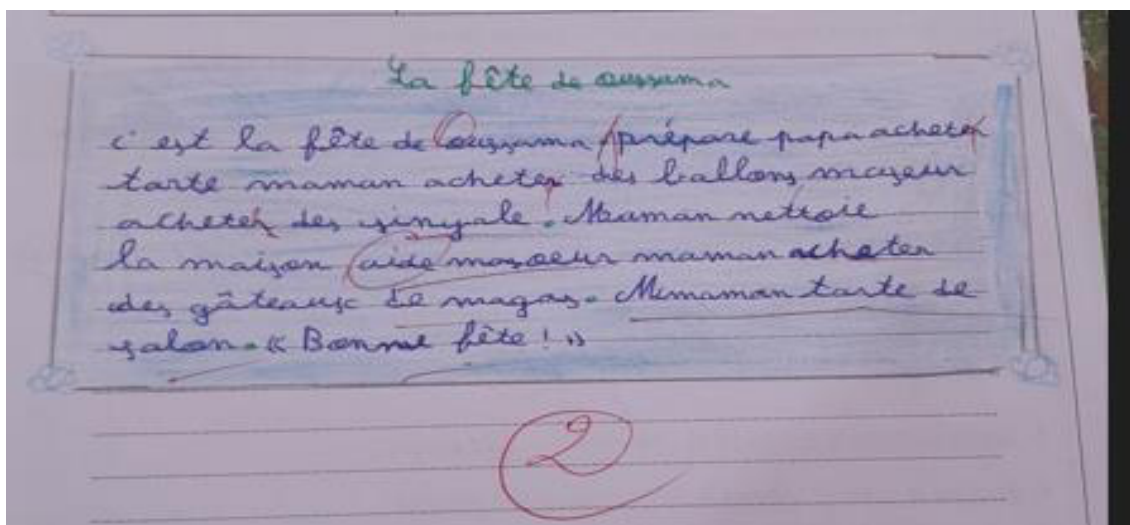 La fête de oussama
c'est la fête de Oussama prépare papa acheter
tarte maman acheter des ballons masœur
acheter des sinyale. Maman nettoie
la maison aide masoeur maman acheter
des gâteaux de magas. Mmaman tarte de
salon. « Bonne fête ! »
2